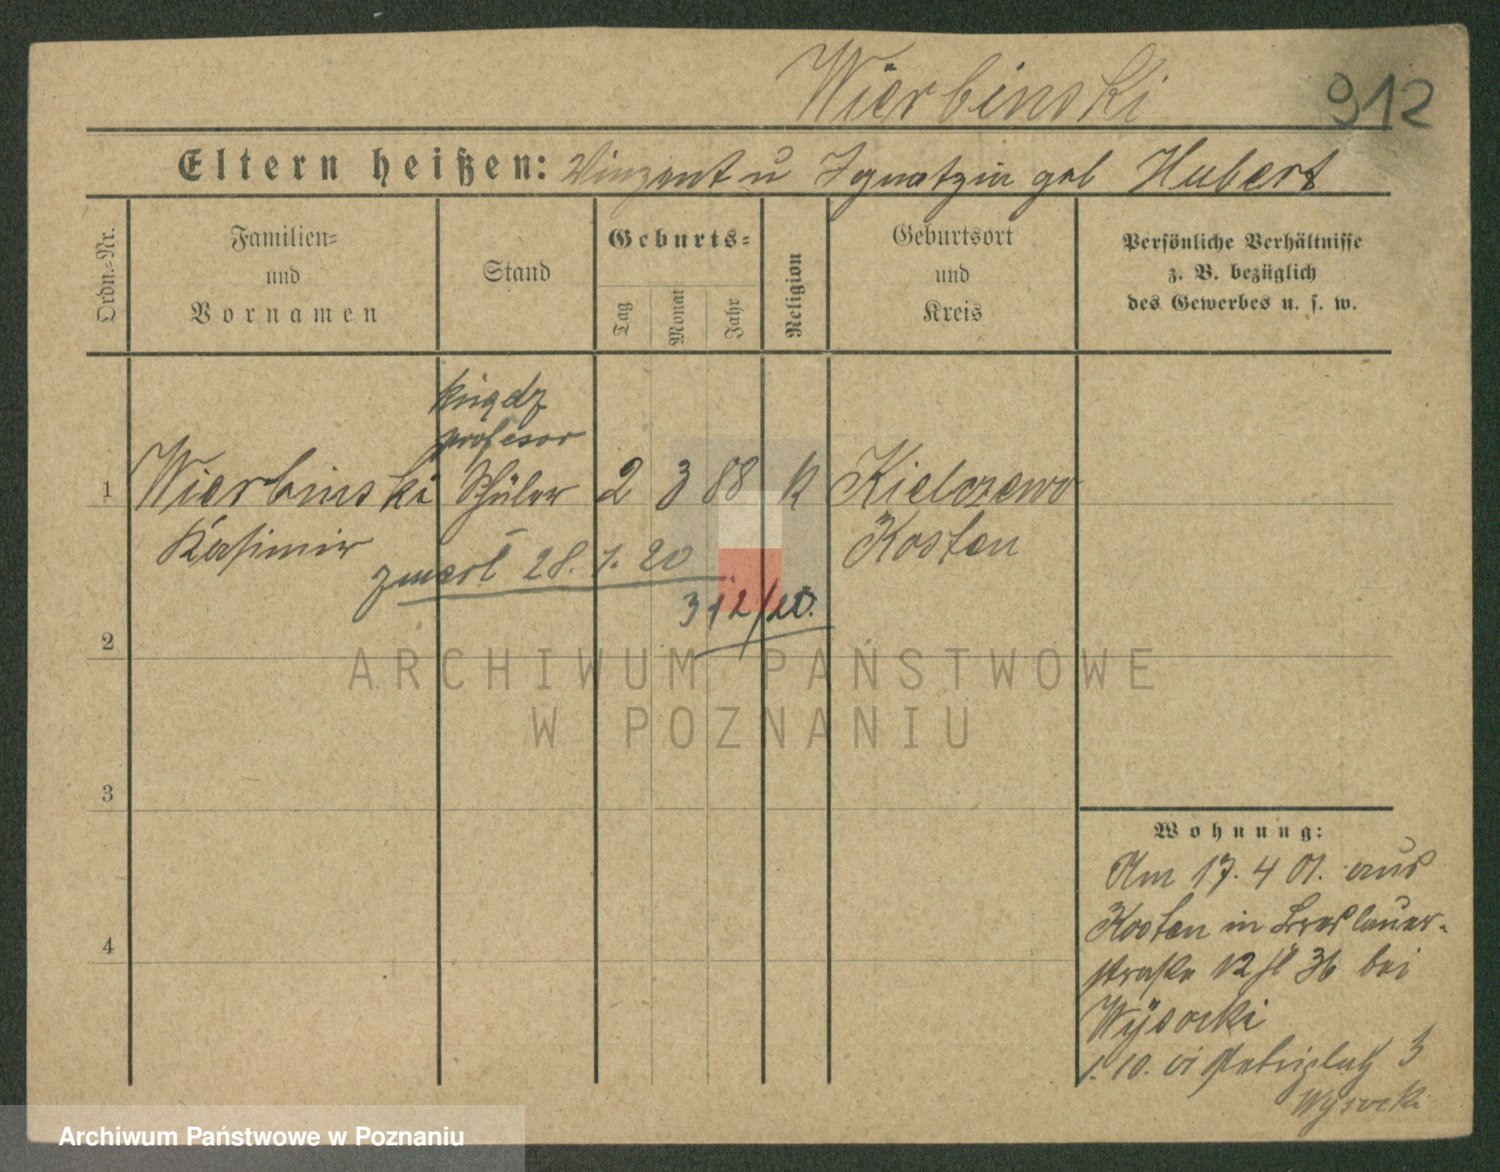 Wierbinski
912
Eltern heißen: Vinzent u Ignatzin geb Hubert
Ordn.-Nr.
Familien-
und
Vornamen
Stand
Geburts-
Tag
Monat
Jahr
Religion
Geburtsort
und
Kreis
Persönliche Verhältnisse
z. B. bezüglich
des Gewerbes u. s. w.
ksiądz
profesor
1 Wierbinski Schüler 2 3 88 k Kielczewo
Kasimir Kosten
zmarł 28. 1. 20
312/20.
2
ARCHIWUM PAŃSTWOWE
W POZNANIU
3
Wohnung:
Am 17. 4 01. aus
Kosten in Breslauer-
straße 12 36 bei
Wÿsocki
1. 10. 01 Petriplatz 3
Wysocki
4
Archiwum Państwowe w Poznaniu